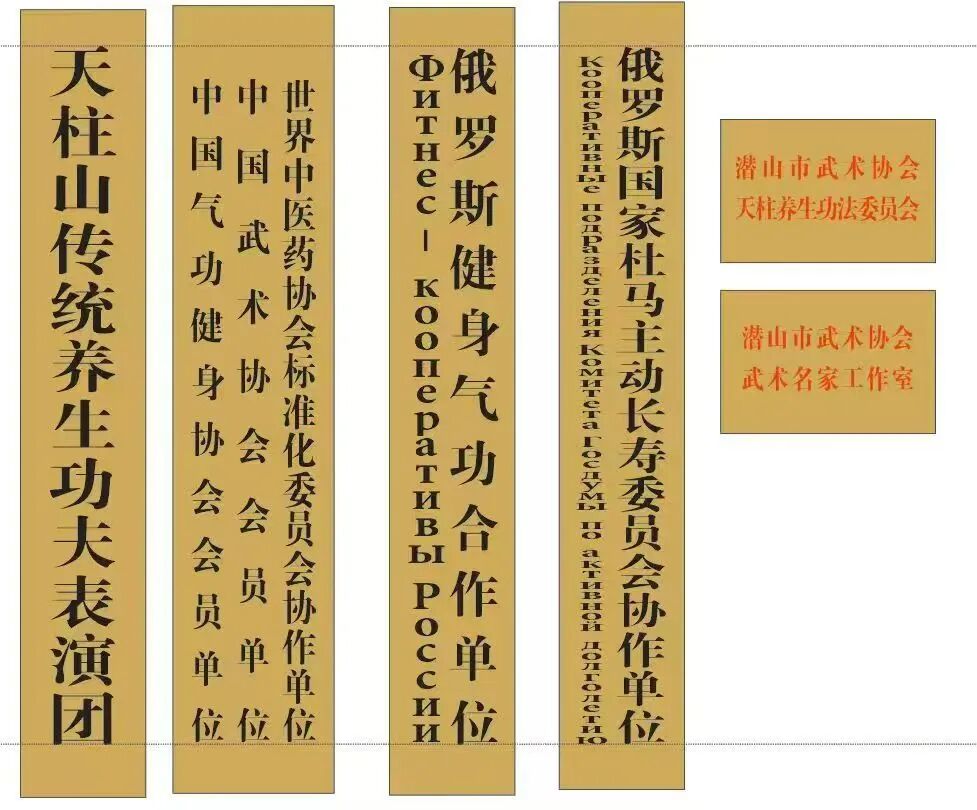 天柱山传统养生功夫表演团
世界中医药协会标准化委员会协作单位
中国武术协会会员单位
中国气功健身协会会员单位
俄罗斯健身气功合作单位
Фитнес – кооперативы России
俄罗斯国家杜马主动长寿委员会协作单位
Кооперативные подразделения Комитета Госдумы по активной долголетию
潜山市武术协会
天柱养生功法委员会
潜山市武术协会
武术名家工作室